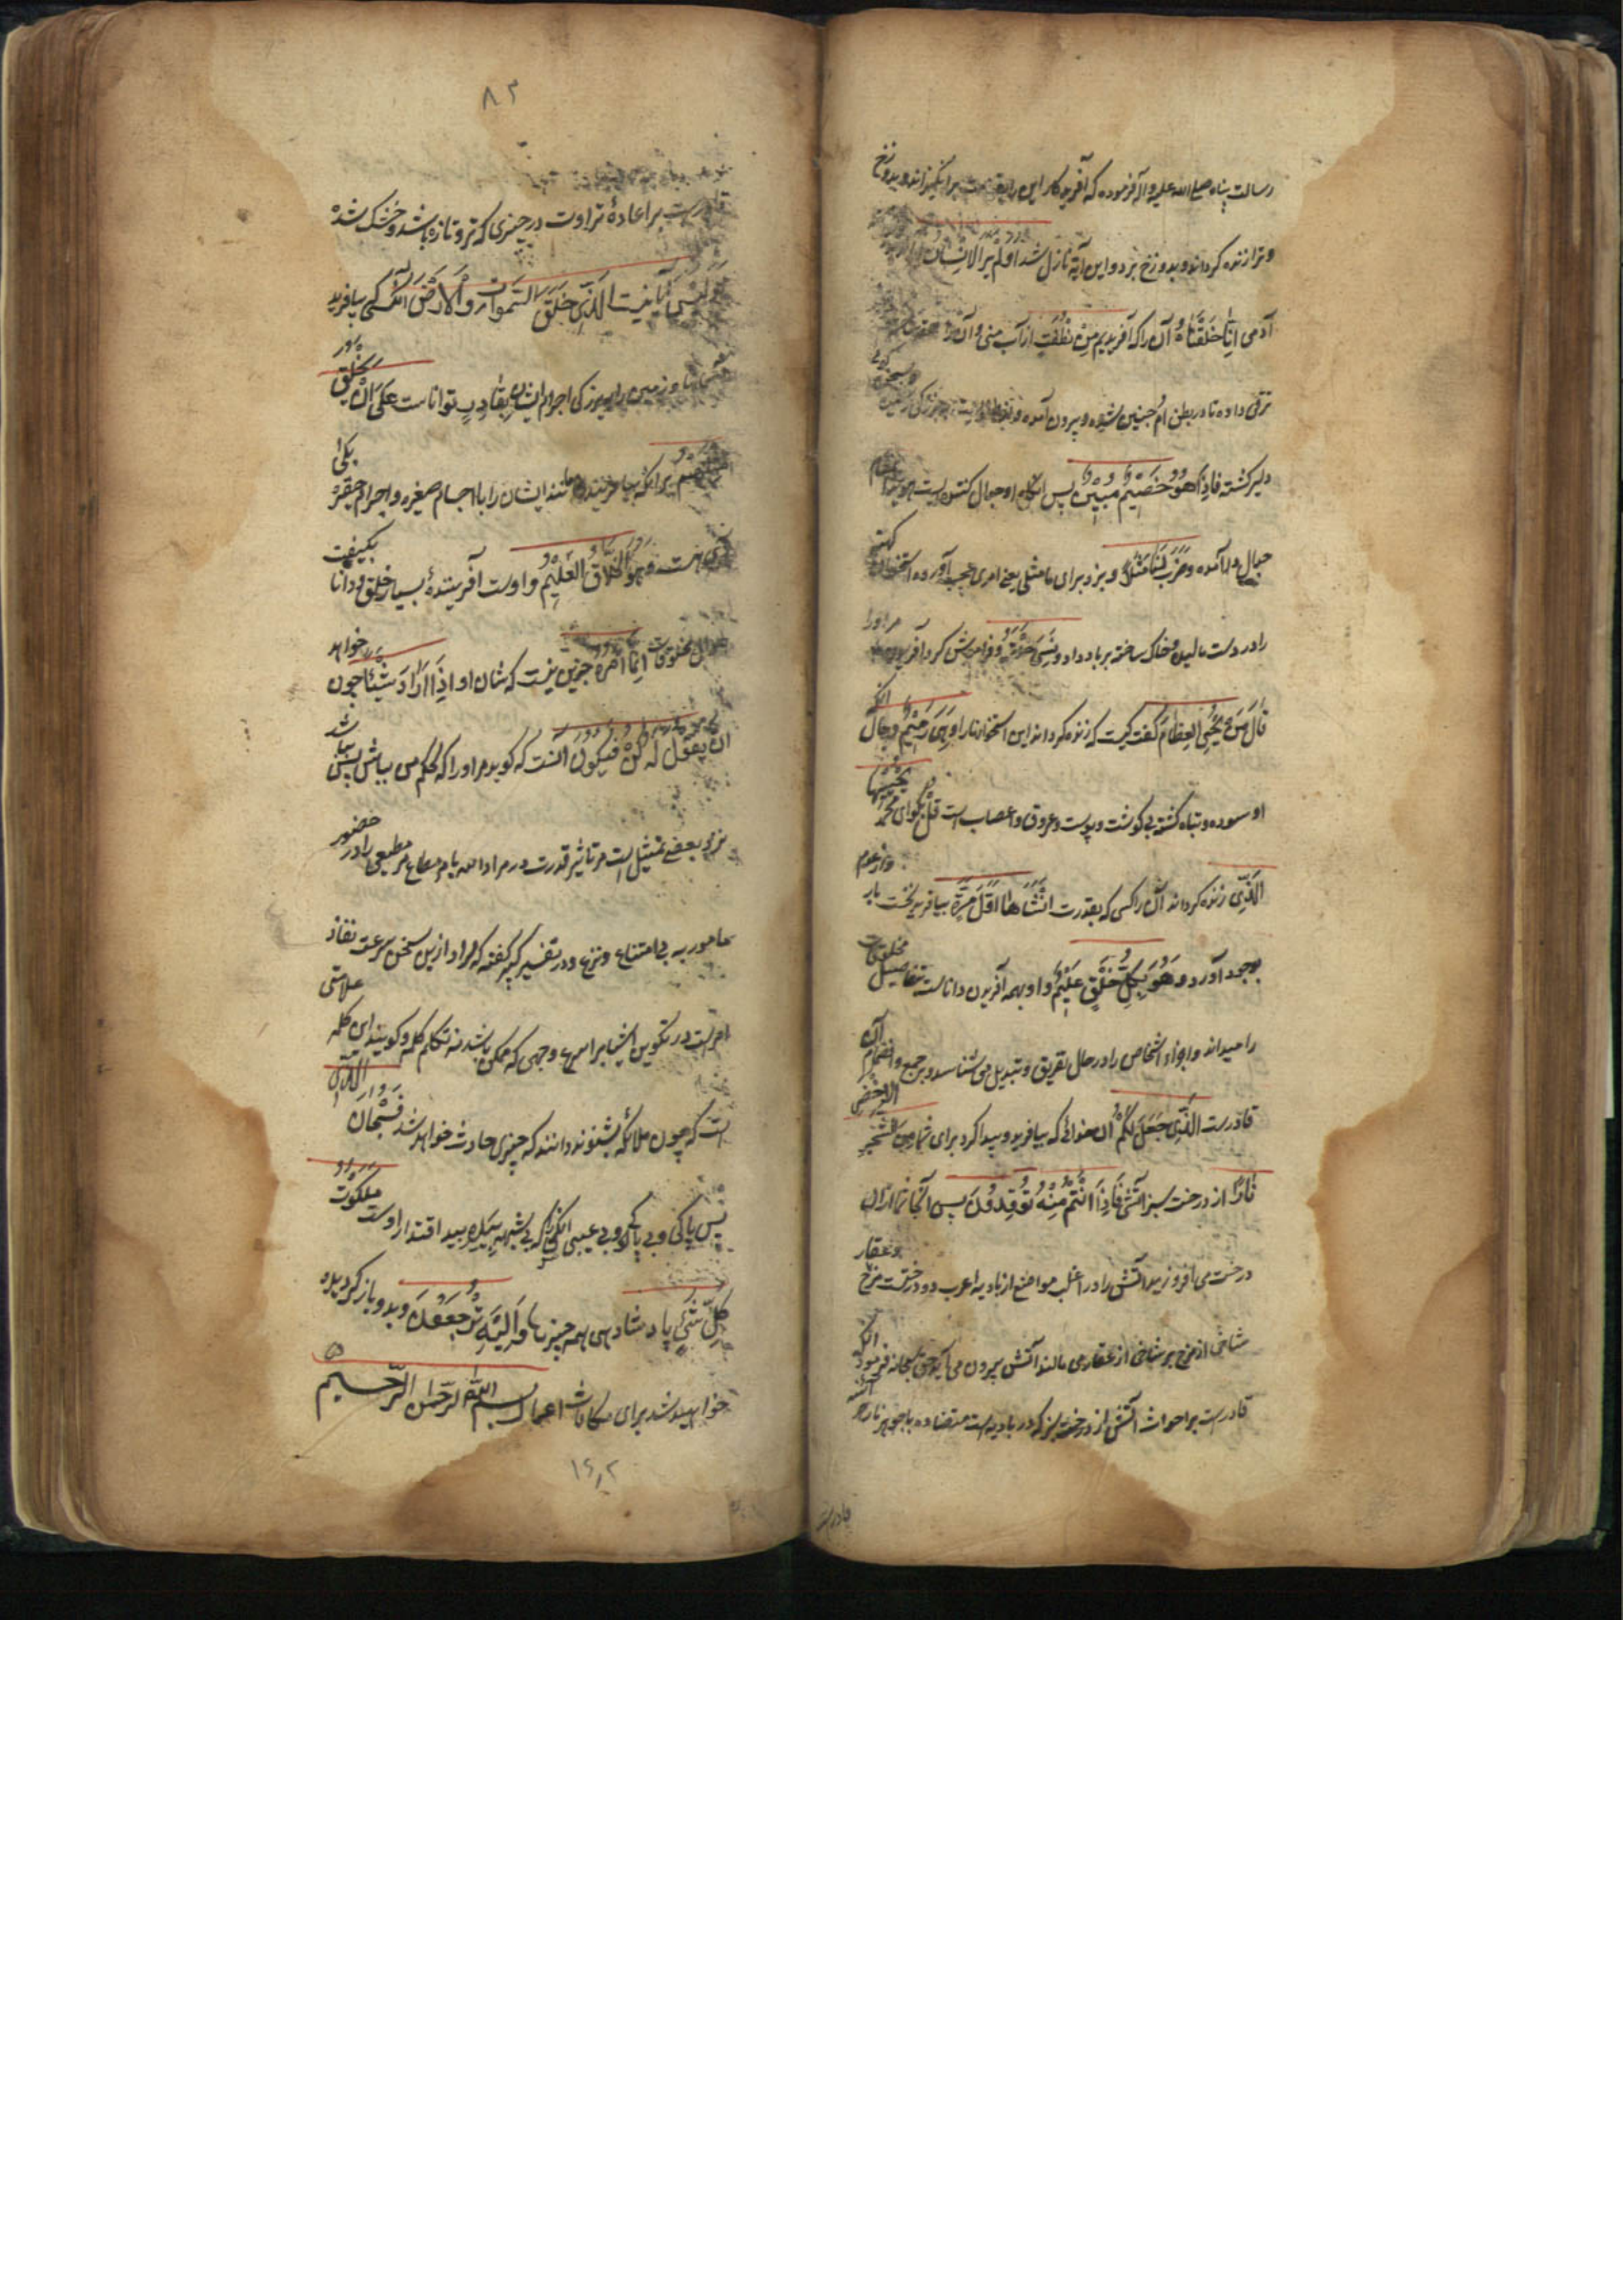 رسالت پناه صلی الله علیه واله فرموده که آفریدکار این را بقیامت برانگیزاند و بدوزخ
و ترا زنده کرداند و بدوزخ برد و این آیة نازل شد اولم یر الانسان
آدمی انا خلقناه آن را که آفریدیم من نطفة از آب منی و آن را
ترقی داده تا در بطن ام جنین شده و بیرون آمده
دلیر کشته فاذا هو خصیم مبین پس انکاه او جدال کننده ایست هویدا
جدال در آمده و ضرب لنا مثلا و بزد برای ما مثلی یعنی امری عجیب آورده استخوان کهنه
را در دست مالیده و خاک ساخته بر باد داد و نسی خلقه و فراموش کرد آفریدن مر اورا
قال من یحیی العظام کفت کیست که زنده کرداند این استخوانها را و هی رمیم و حال آنکه
او سوده و تباه کشته بی کوشت و پوست و عروق و اعصاب است قل بکو ای محمد یحییها
الذی زنده کرداند آن را کسی که بقدرت انشاها اول مرة بیافرید نخست بار و از عدم
بوجود آورد و هو بکل خلق علیم و او بهمه آفریدن داناست تفاصیل مخلوقات
را میداند و اجزاء اشخاص را در حال تفریق و تبدیل می شناسد و بر جمع و انضمام آن
قادرست الذی جعل لکم آن خدائی که بیافرید و پیدا کرد برای شما من الشجر الاخضر
نارا از درخت سبز آتشی فاذا انتم منه توقدون پس آنکاه شما از آن
درخت می افروزید آتش را در اغلب مواضع از بادیه اعرب دو درختست مرخ وعفار
شاخی از مرخ بر شاخی از عفار می مالند آتش بیرون می آید حق سبحانه فرمود آنکه
قادرست بر احداث آتش از درخت سبز که در بادیه است متضاده با جوهر ناریه
قادرست
٨٣
قادرست بر اعادهٔ تراوت در چیزی که تر و تازه باشد و خشک شده
اولیس آیا نیست الذی خلق السموات و الارض آنکسی که بیافرید
آسمانها و زمین را ببزرکی اجرام ایشان بقادر تواناست علی ان یخلق
مثلهم برآنکه بیافریند مانند ایشان را با اجسام صغیره و اجرام حقیره بلی
آری هست و هو الخلاق العلیم و اوست آفرینندهٔ بسیار خلق و دانا بکیفیت
احوال مخلوقات انما امره جزین نیست که شان او اذا اراد شیئا چون خواهد
ان یقول له کن فیکون آنست که کوید مر اورا که بحکم من بباش پس بباشد
نزد بعضی تمثیل است مر تاثیر قدرت در مراد الله بامر مطاع مر مطیعی را در حضور
مامور به بی امتناع و نزع و در تفسیر کبیر کفته که مراد ازین سخن سرعت نفاذ
امرست در تکوین اشیا بر اسرع وجهی که ممکن باشد نه تکلم کلمه و کویند این کلمه علامتی
است که چون ملائکه بشنوند دانند که چیزی حادث خواهد شد فسبحان الذی
پس پاکی و بی عیبی آنکس را که بی شبهه بیده بید اقتدار اوست ملکوت
کل شیء پادشاهی همه چیزها و الیه ترجعون و بدو باز کردیده
خواهید شد برای مکافات اعمال بسم الله الرحمن الرحیم